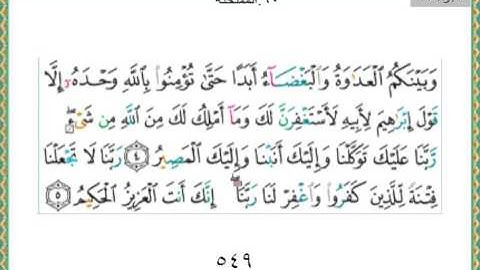 ٦٠.الممتحنة
وَبَيْنَكُمُ ٱلْعَدَٰوَةُ وَٱلْبَغْضَآءُ أَبَدًا حَتَّىٰ تُؤْمِنُوا۟ بِٱللَّهِ وَحْدَهُۥٓ إِلَّا
قَوْلَ إِبْرَٰهِيمَ لِأَبِيهِ لَأَسْتَغْفِرَنَّ لَكَ وَمَآ أَمْلِكُ لَكَ مِنَ ٱللَّهِ مِن شَىْءٍ ۖ
رَّبَّنَا عَلَيْكَ تَوَكَّلْنَا وَإِلَيْكَ أَنَبْنَا وَإِلَيْكَ ٱلْمَصِيرُ ﴿٤﴾ رَبَّنَا لَا تَجْعَلْنَا
فِتْنَةً لِّلَّذِينَ كَفَرُوا۟ وَٱغْفِرْ لَنَا رَبَّنَآ ۖ إِنَّكَ أَنتَ ٱلْعَزِيزُ ٱلْحَكِيمُ ﴿٥﴾
٥٤٩